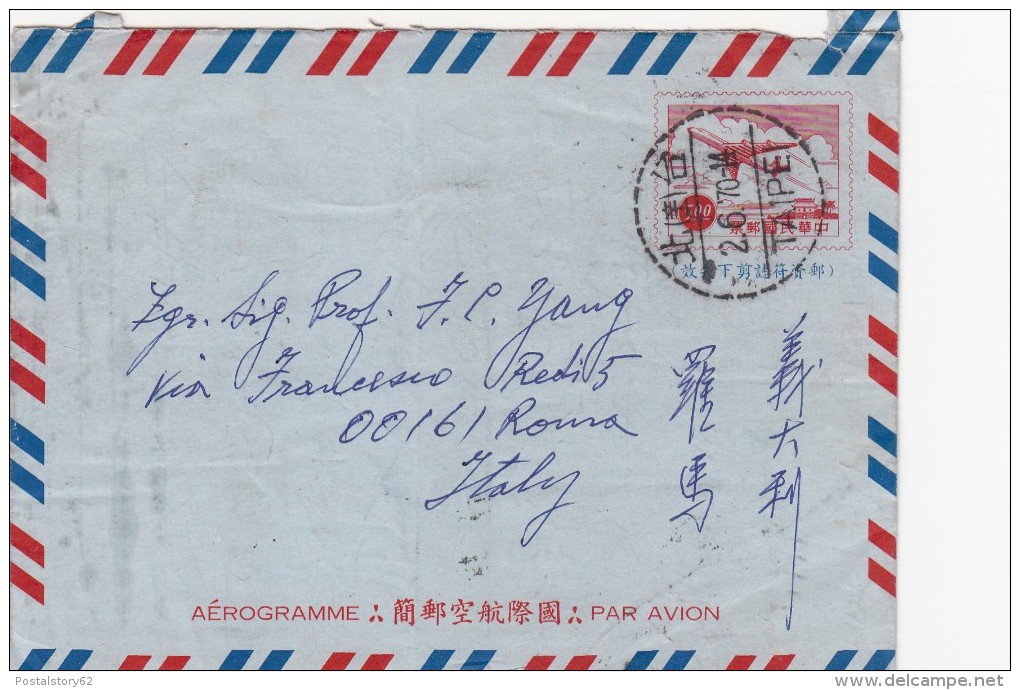 5.00
中華民國郵票
(郵資符誌剪下無效)
台(書)北
2.6.70
TAIPEI
Egr. Sig. Prof. F. C. Yang
Via Francesco Redi 5
00161 Roma
Italy
義大利
羅馬
AÉROGRAMME 國際航空郵簡 PAR AVION
Postalstory62
delcampe.net